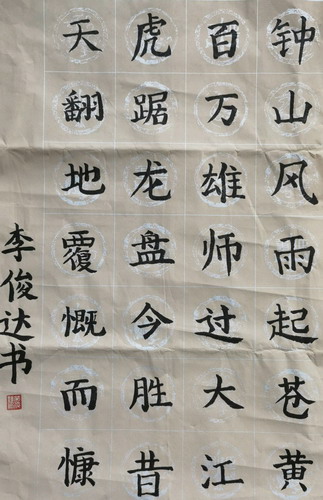 钟山风雨起苍黄
百万雄师过大江
虎踞龙盘今胜昔
天翻地覆慨而慷
李俊达书